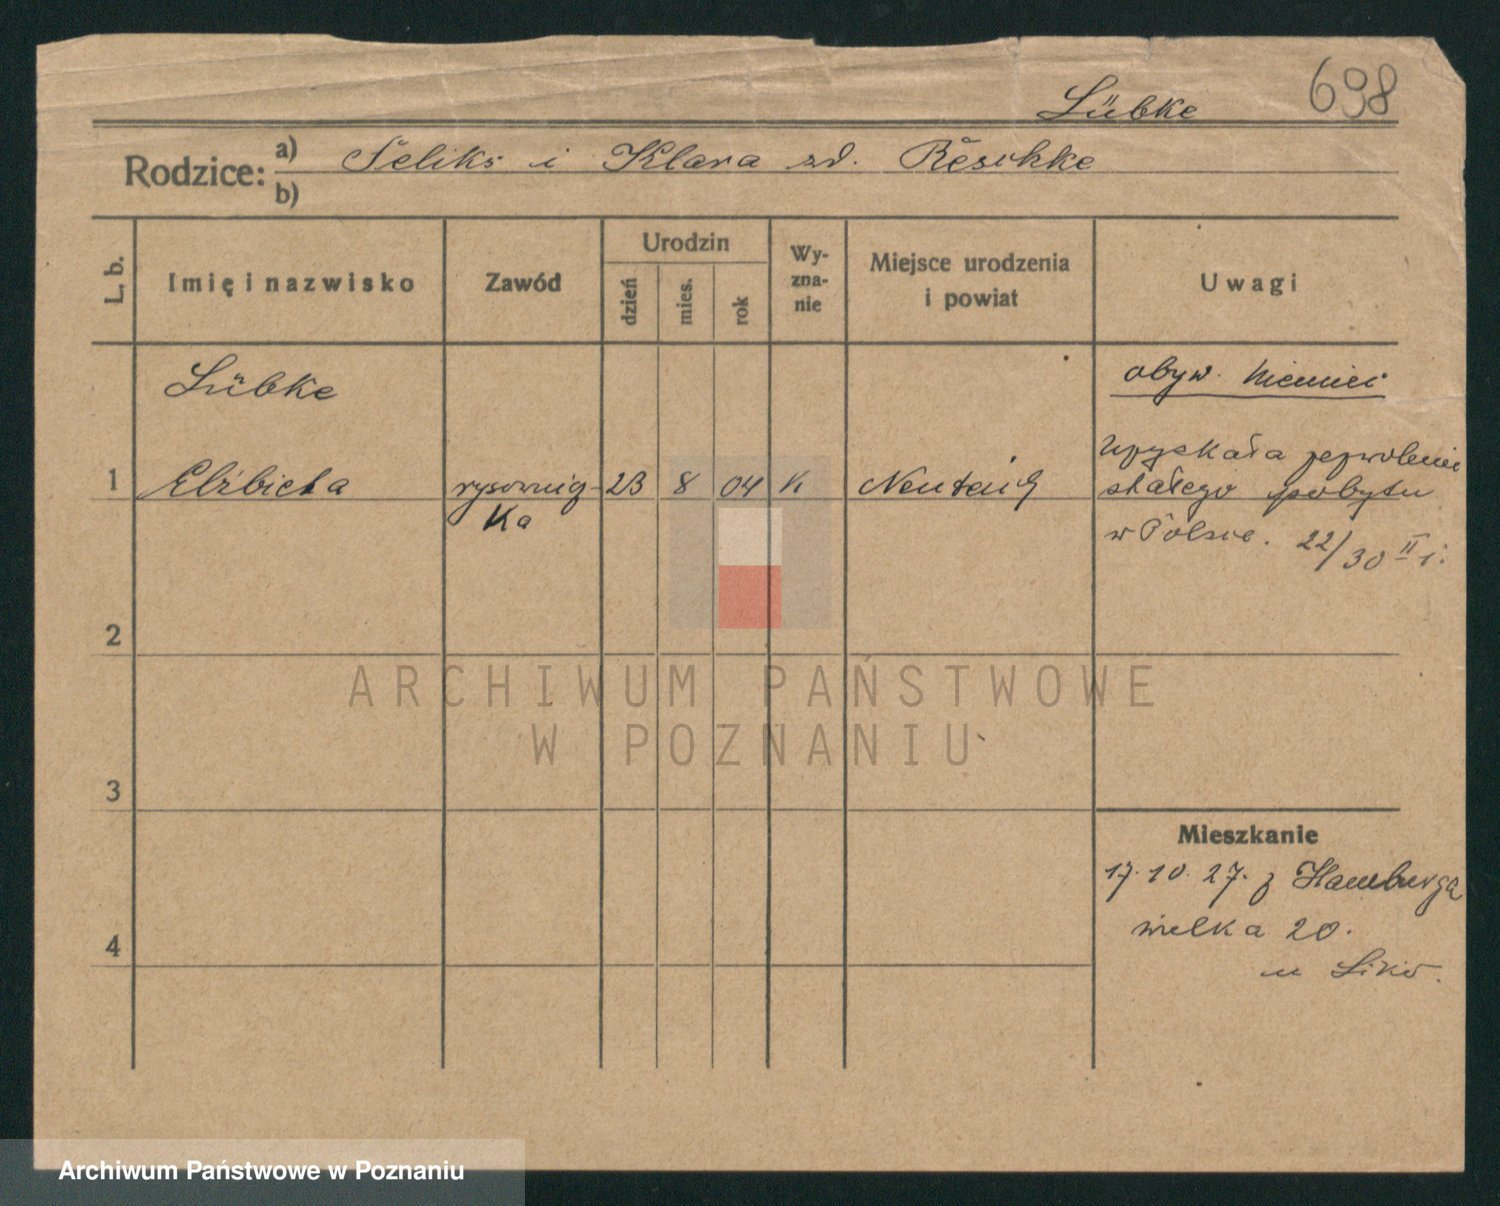 698
Lübke
Rodzice: a) Feliks i Klara zd. Reschke
b)
L. b.
Imię i nazwisko
Zawód
Urodzin
dzień
mies.
rok
Wy-
zna-
nie
Miejsce urodzenia
i powiat
Uwagi
Lübke
obyw. niemiec
1 Elżbieta rysownicz- 23 8 04 K Neuteich
ka
uzyskała pozwolenie
stałego pobytu
w Polsce. 22/30 II
2
3
4
Mieszkanie
17.10.27. z Hamburga
wielka 20.
u
ARCHIWUM PAŃSTWOWE
W POZNANIU
Archiwum Państwowe w Poznaniu